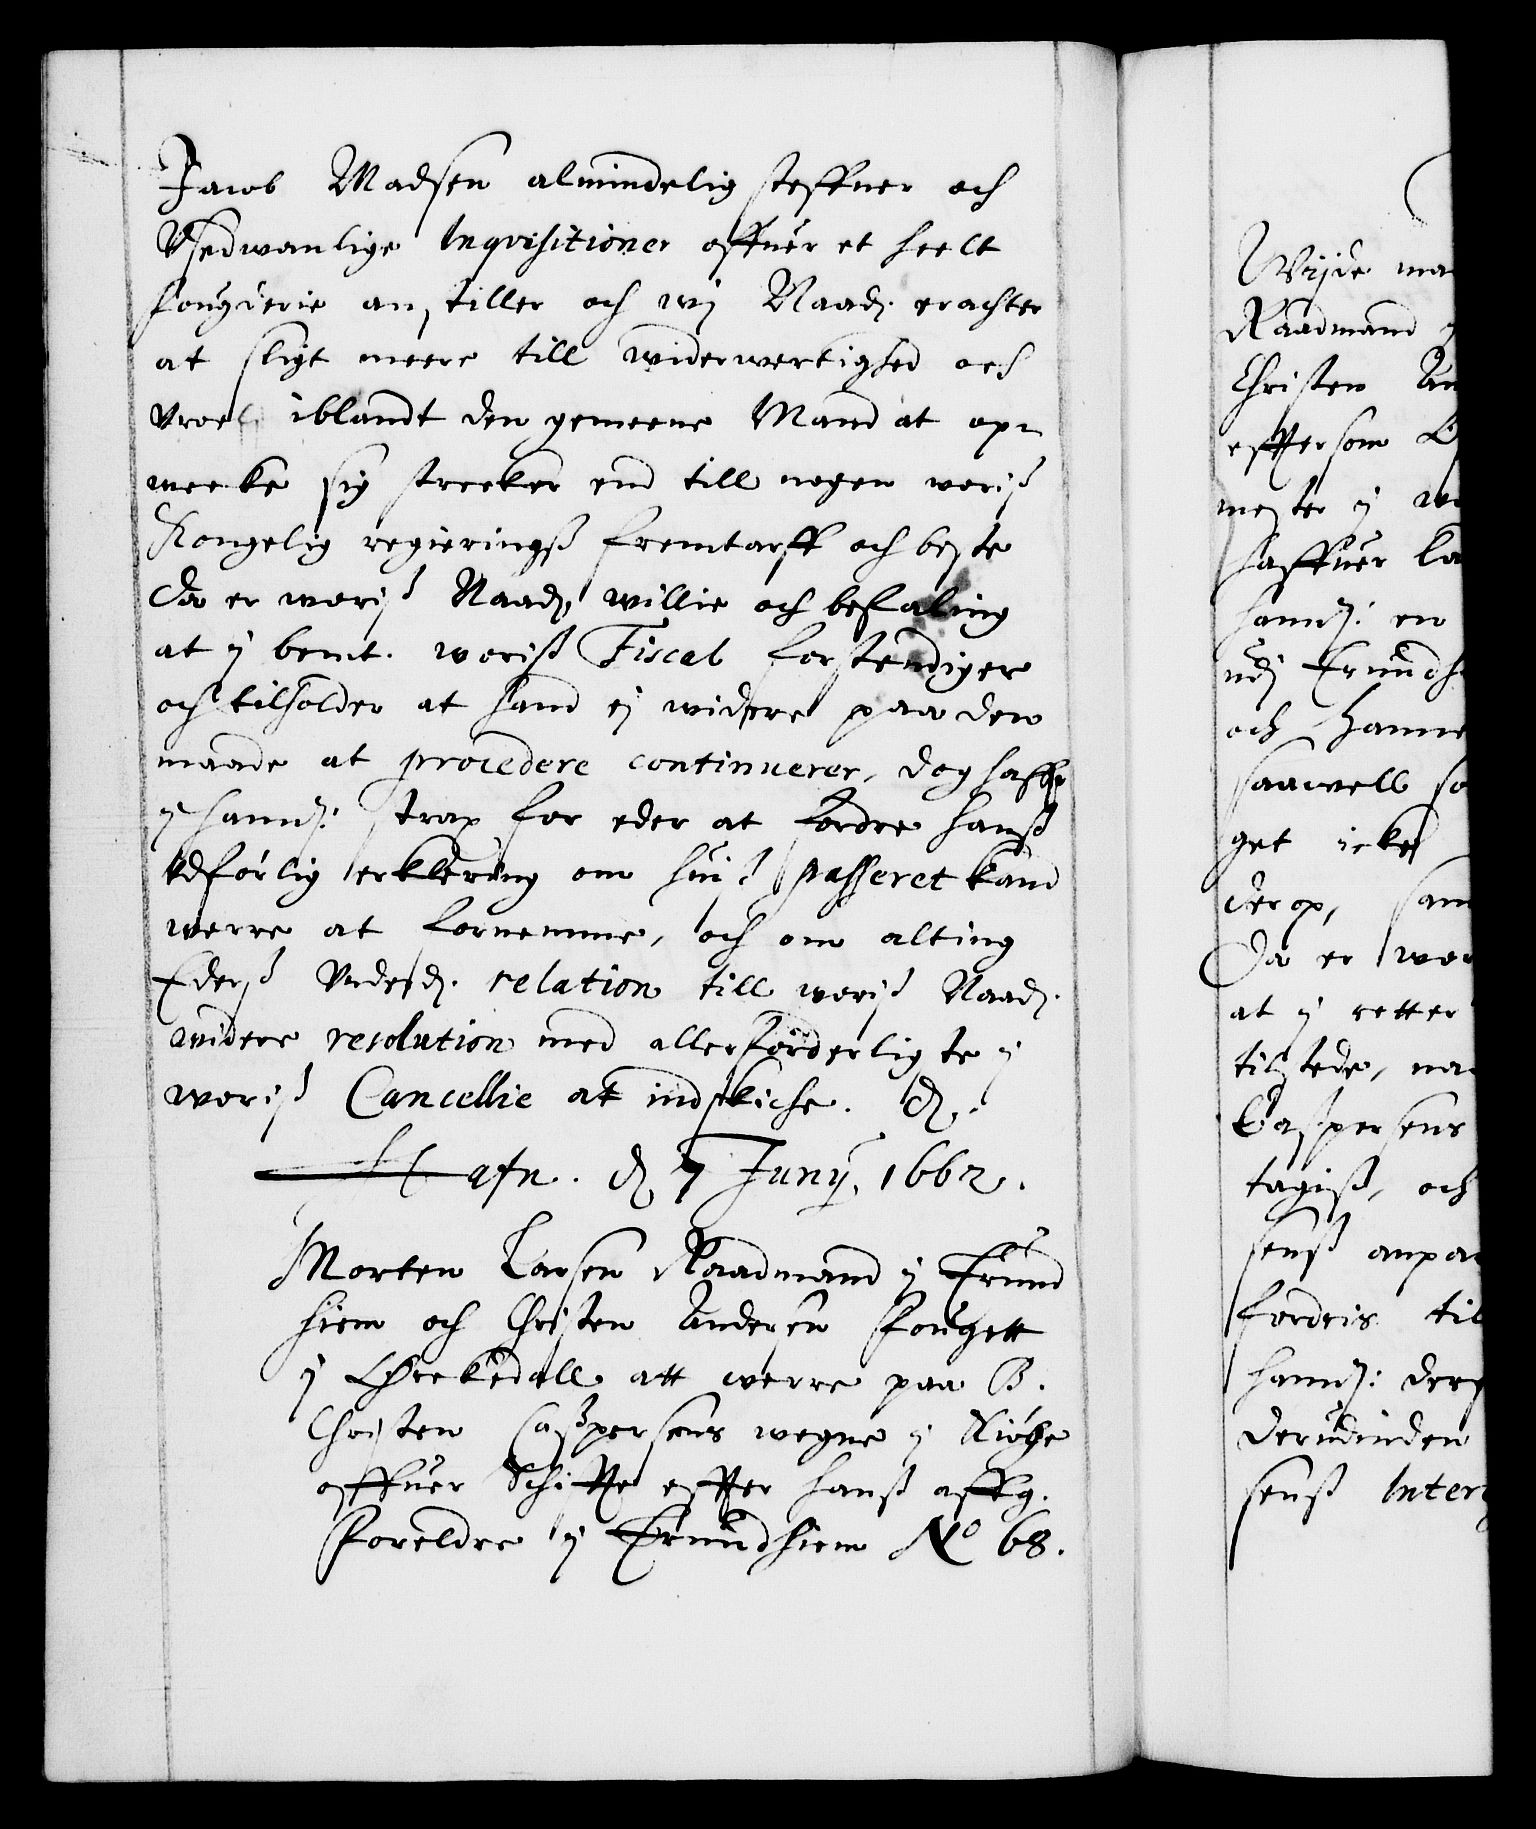 Jacob Madsen almindelig steffner och
Vsedwanlige Inqvisitioner offuer et heelt
fougderie anstiller och wij Naadj. erachter
at sligt meere till widerwertighed och
Vroel iblandt den gemeene Mand at op-
wecke sig strecker end till nogen woriß
Kongelig regieringß fremtarff och beste
Da er woriß Naadj. willie och befaling
at ij bemt. woriß Fiscal forstendiger
och tilholder at hand ej widere paa den
maade at procedere continuerer, dog haffr
ij hannem strax for eder at fordre hanß
Vdførlig erklering om huiß passeret kand
werre at fornemme, och om alting
Ederß Vnderdj. relation till woriß Naadj.
widere resolution med allerforderligste ij
woriß Cancellie at indskicke. Dj.
Hafn. dj 7 Junij 1662.
Morten Larsen Raadmand ij Trund
hiem och Christen Andersen fougett
ij werre paa B.
Christen Caßpersens wegne ij Kiøge
offuer Schiffte effter hanß affg.
Foreldre ij Trundhiem No 68.
Wijde ma
Raadmand
Christen An
effter som B
mester ij
haffuer la
hannem: en
udj Trundh
och hanne
saawell so
get icke
derop, sam
Da er wor
at ij retter
tilstede, na
Caspersens
tagiß, och
senß anpa
fordris til
hannem: der
derudinden
senß Inter